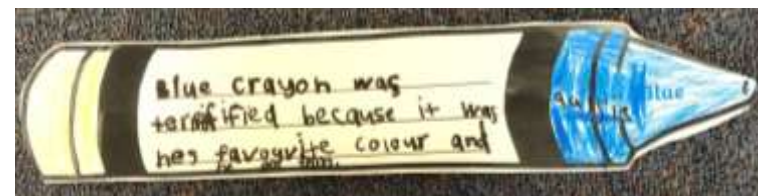 Blue crayon was
terrified because it was
her favouvite colour and
Blue